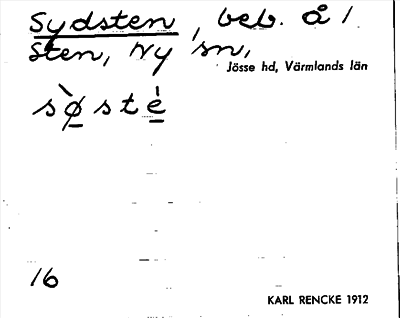 Sydsten, beb. å 1
Sten, Ny sn,
Jösse hd, Värmlands län
sø̀stè
16
KARL RENCKE 1912